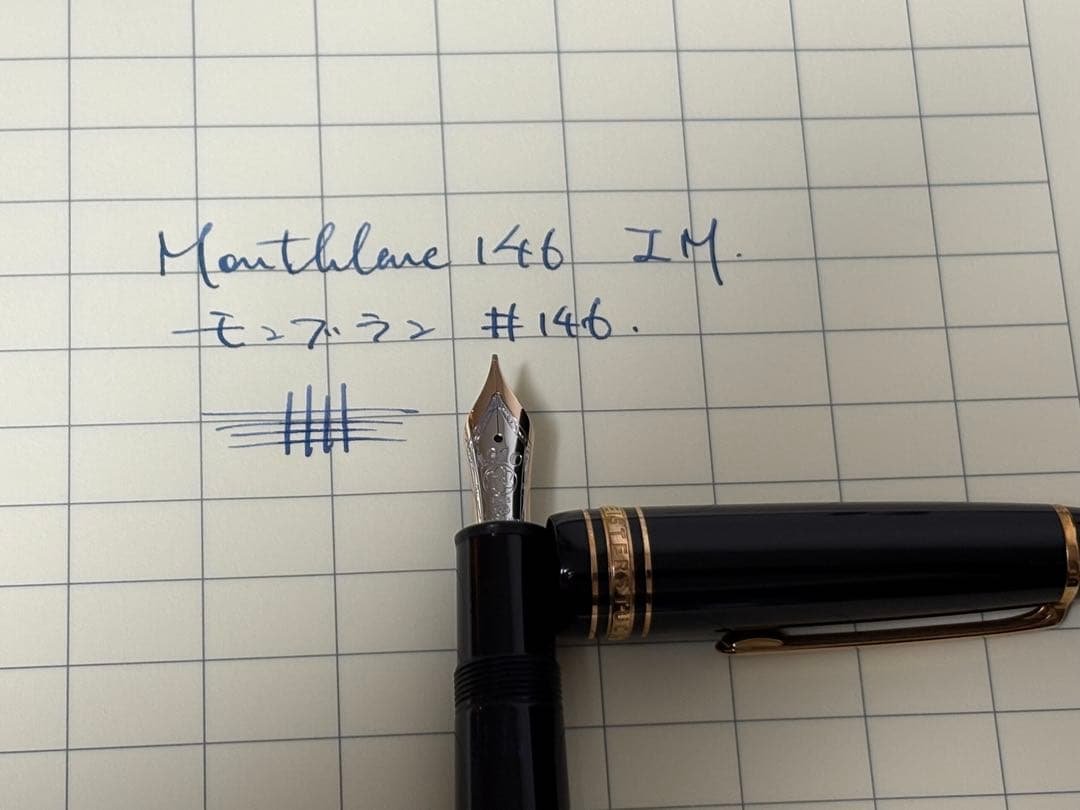 Montblanc 146 IM.
モンブラン #146.